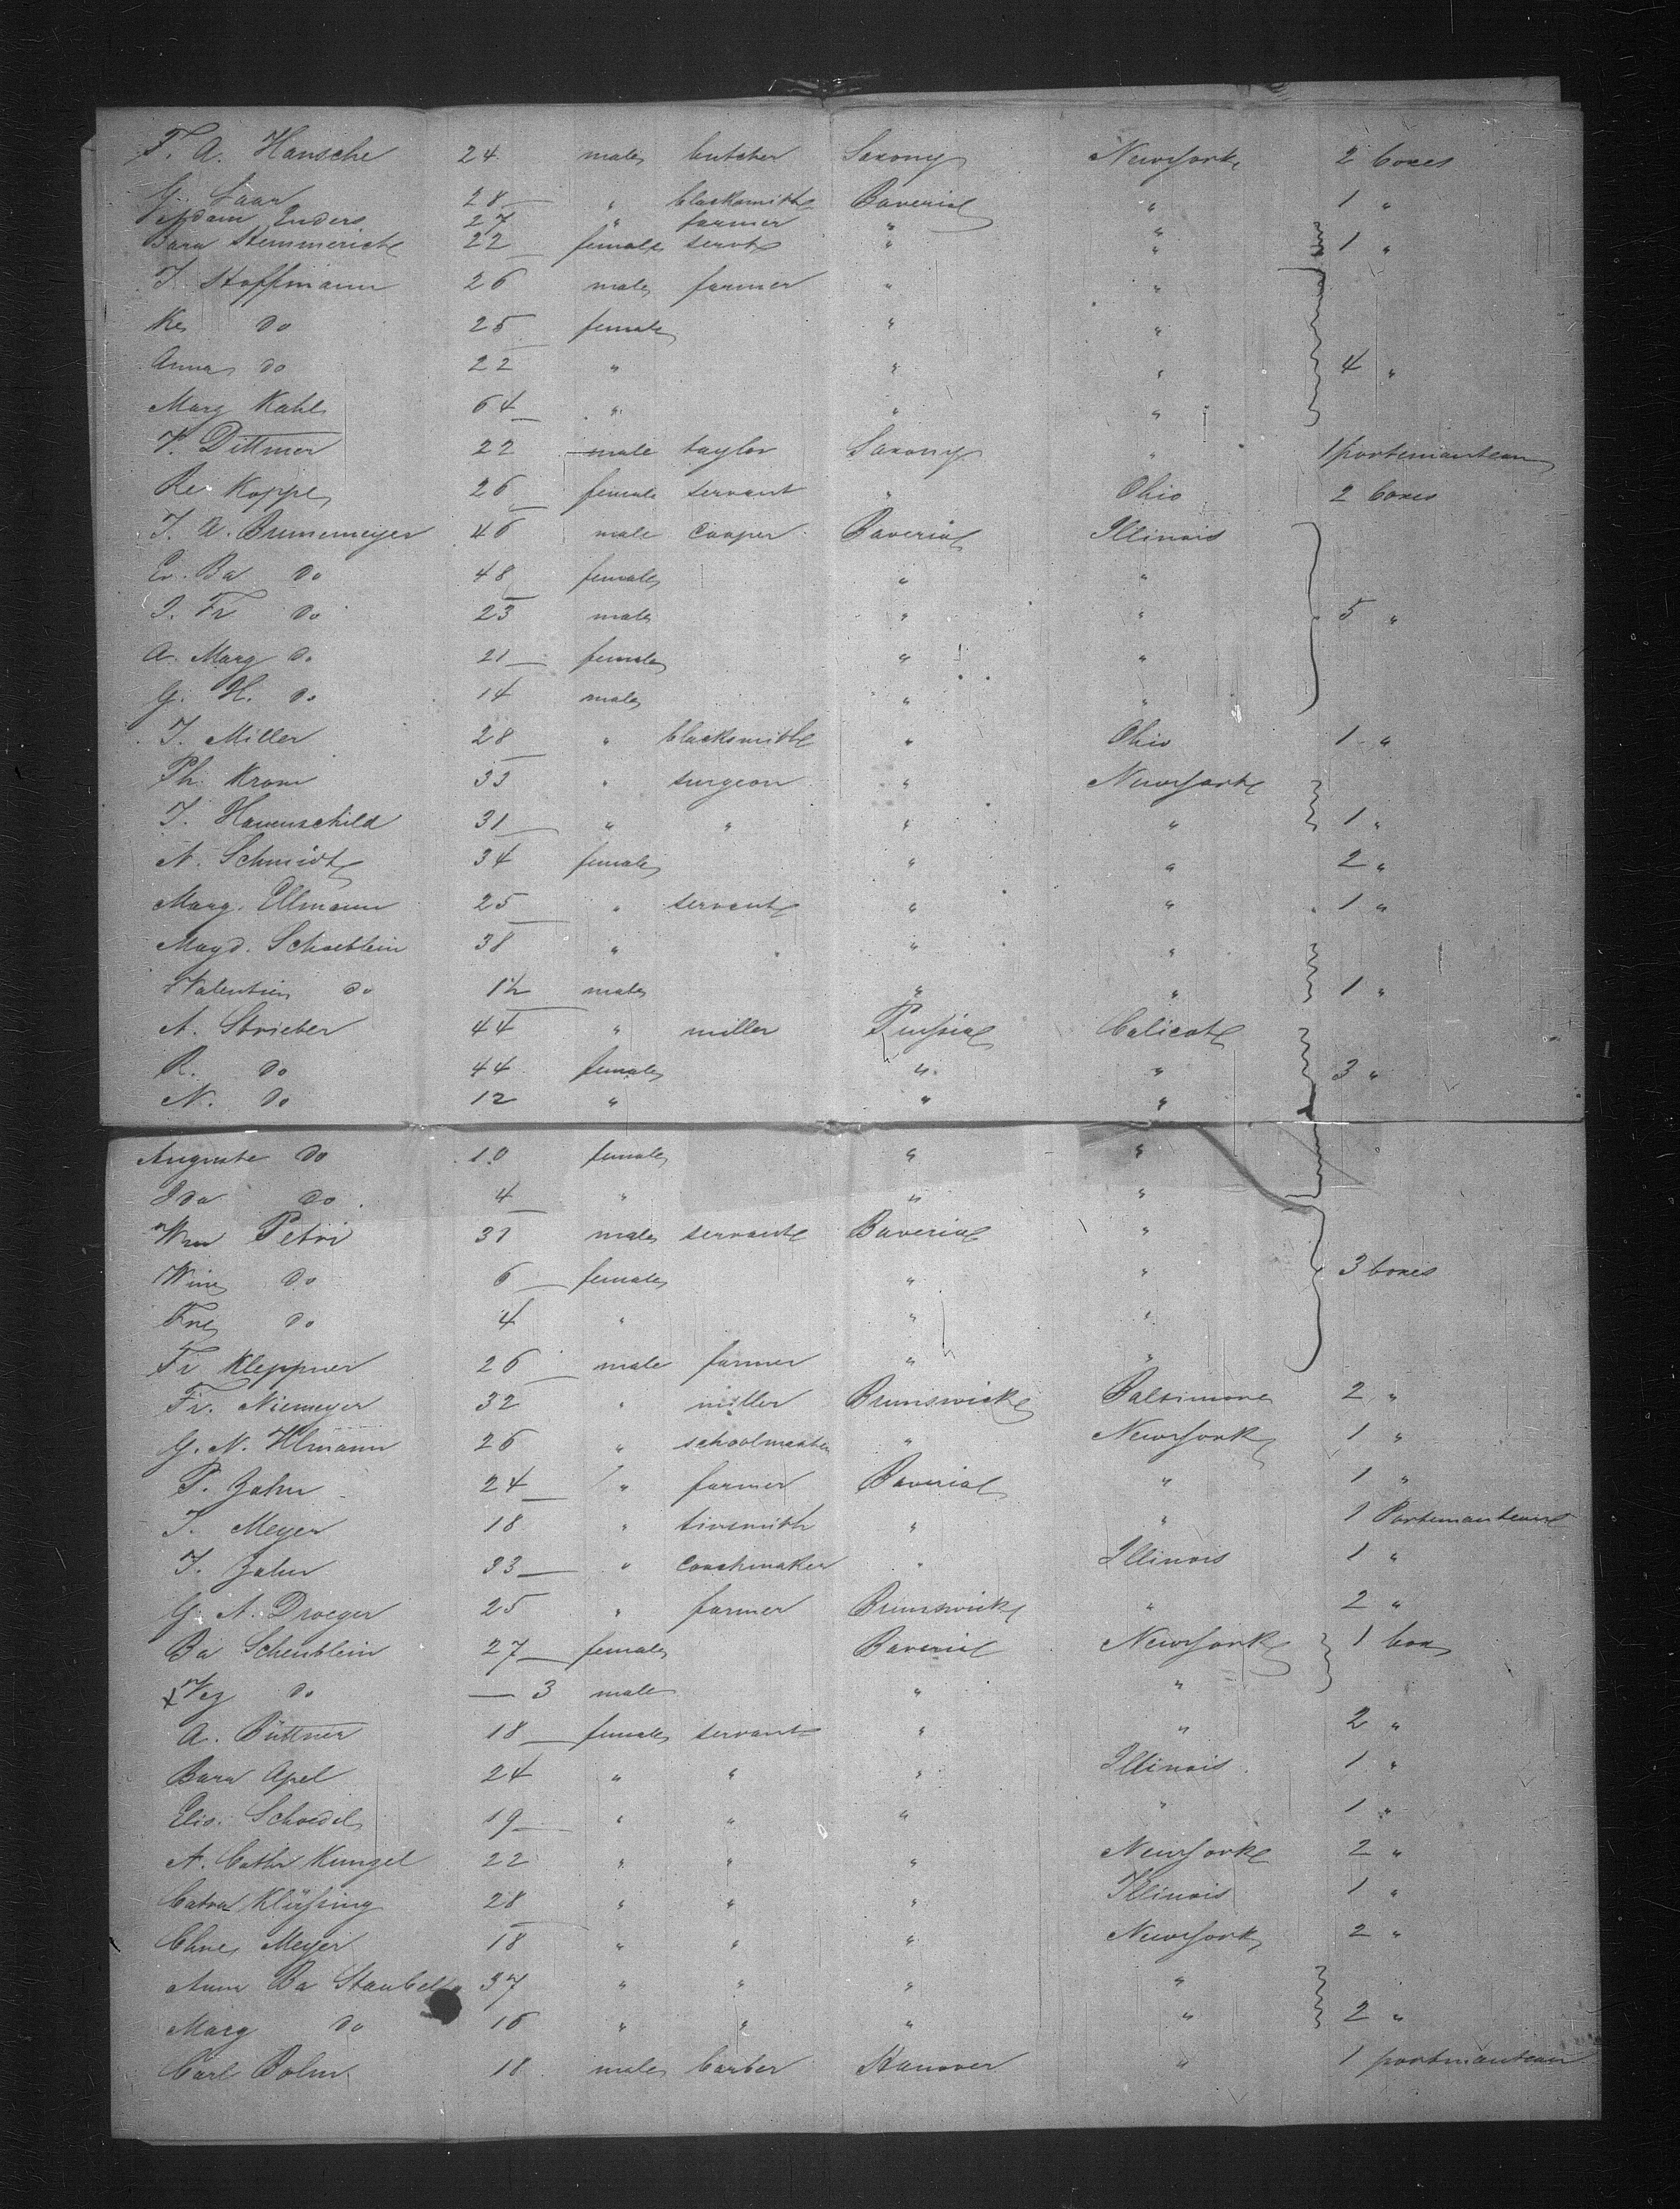 F. A. Hansche 24 male butcher Saxony NewYork 2 boxes
G. Saar 28 " blacksmith Baveria " 1 "
Adam Enders 27 " farmer " "
Bara Stemmerich 22 female servt " " 1 "
J. Hoffmann 26 male farmer " "
Ke do 25 female " "
Anna do 22 " " " 4 "
Marg Kahl 64 " " "
F. Dittmer 22 male taylor Saxony " 1 portemanteau
Re Koppe 26 female servant " Ohio 2 boxes
J. A. Brunemeyer 46 male cooper Baveria Illinois
Ev. Ba do 48 female " "
J. Fr do 23 male " " 5 "
A. Marg do 21 female " "
G. H. do 14 male " "
J. Miller 28 " blacksmith " Ohio 1 "
Ph. Krom 33 " surgeon " NewYork
J. Hauenschild 31 " " " " 1 "
A. Schmidt 34 female " " 2 "
Marg. Ellmann 25 " servant " " 1 "
Magd. Schaeblein 38 " " "
Valentin do 1½ male " " 1 "
A. Strieber 44 " miller Prussia Calicot
R. do 44 female " " 3 "
N. do 12 " " "
Auguste do 10 female " "
Ida do 4 " " "
Wm Petri 31 male servant Baveria "
Wine do 6 female " " 3 boxes
Fne do 4 " " "
Fr Kleppner 26 male farmer " "
Fr. Niemeyer 32 " miller Brunswick Baltimore 2 "
G. N. Ulmann 26 " schoolmaster " NewYork 1 "
P. Jahn 24 " farmer Baveria " 1 "
J. Meyer 18 " tinsmith " " 1 Portemanteau
J. Jahn 33 " coachmaker " Illinois 1 "
G. A. Droeger 25 " farmer Brunswick " 2 "
Ba Scheublein 27 female Baveria NewYork 1 box
do 3 male " "
A. Büttner 18 female servant " " 2 "
Bara Apel 24 " " " Illinois 1 "
Elis. Schoedel 19 " " " " 1 "
A. Cath Kunzel 22 " " " NewYork 2 "
Catra Klüssing 28 " " " Illinois 1 "
Chne Meyer 18 " " " NewYork 2 "
Anna Ba Staubelt 37 " " " "
Marg do 16 " " " " 2 "
Carl Bolm 18 male barber Hanover " 1 portmanteau